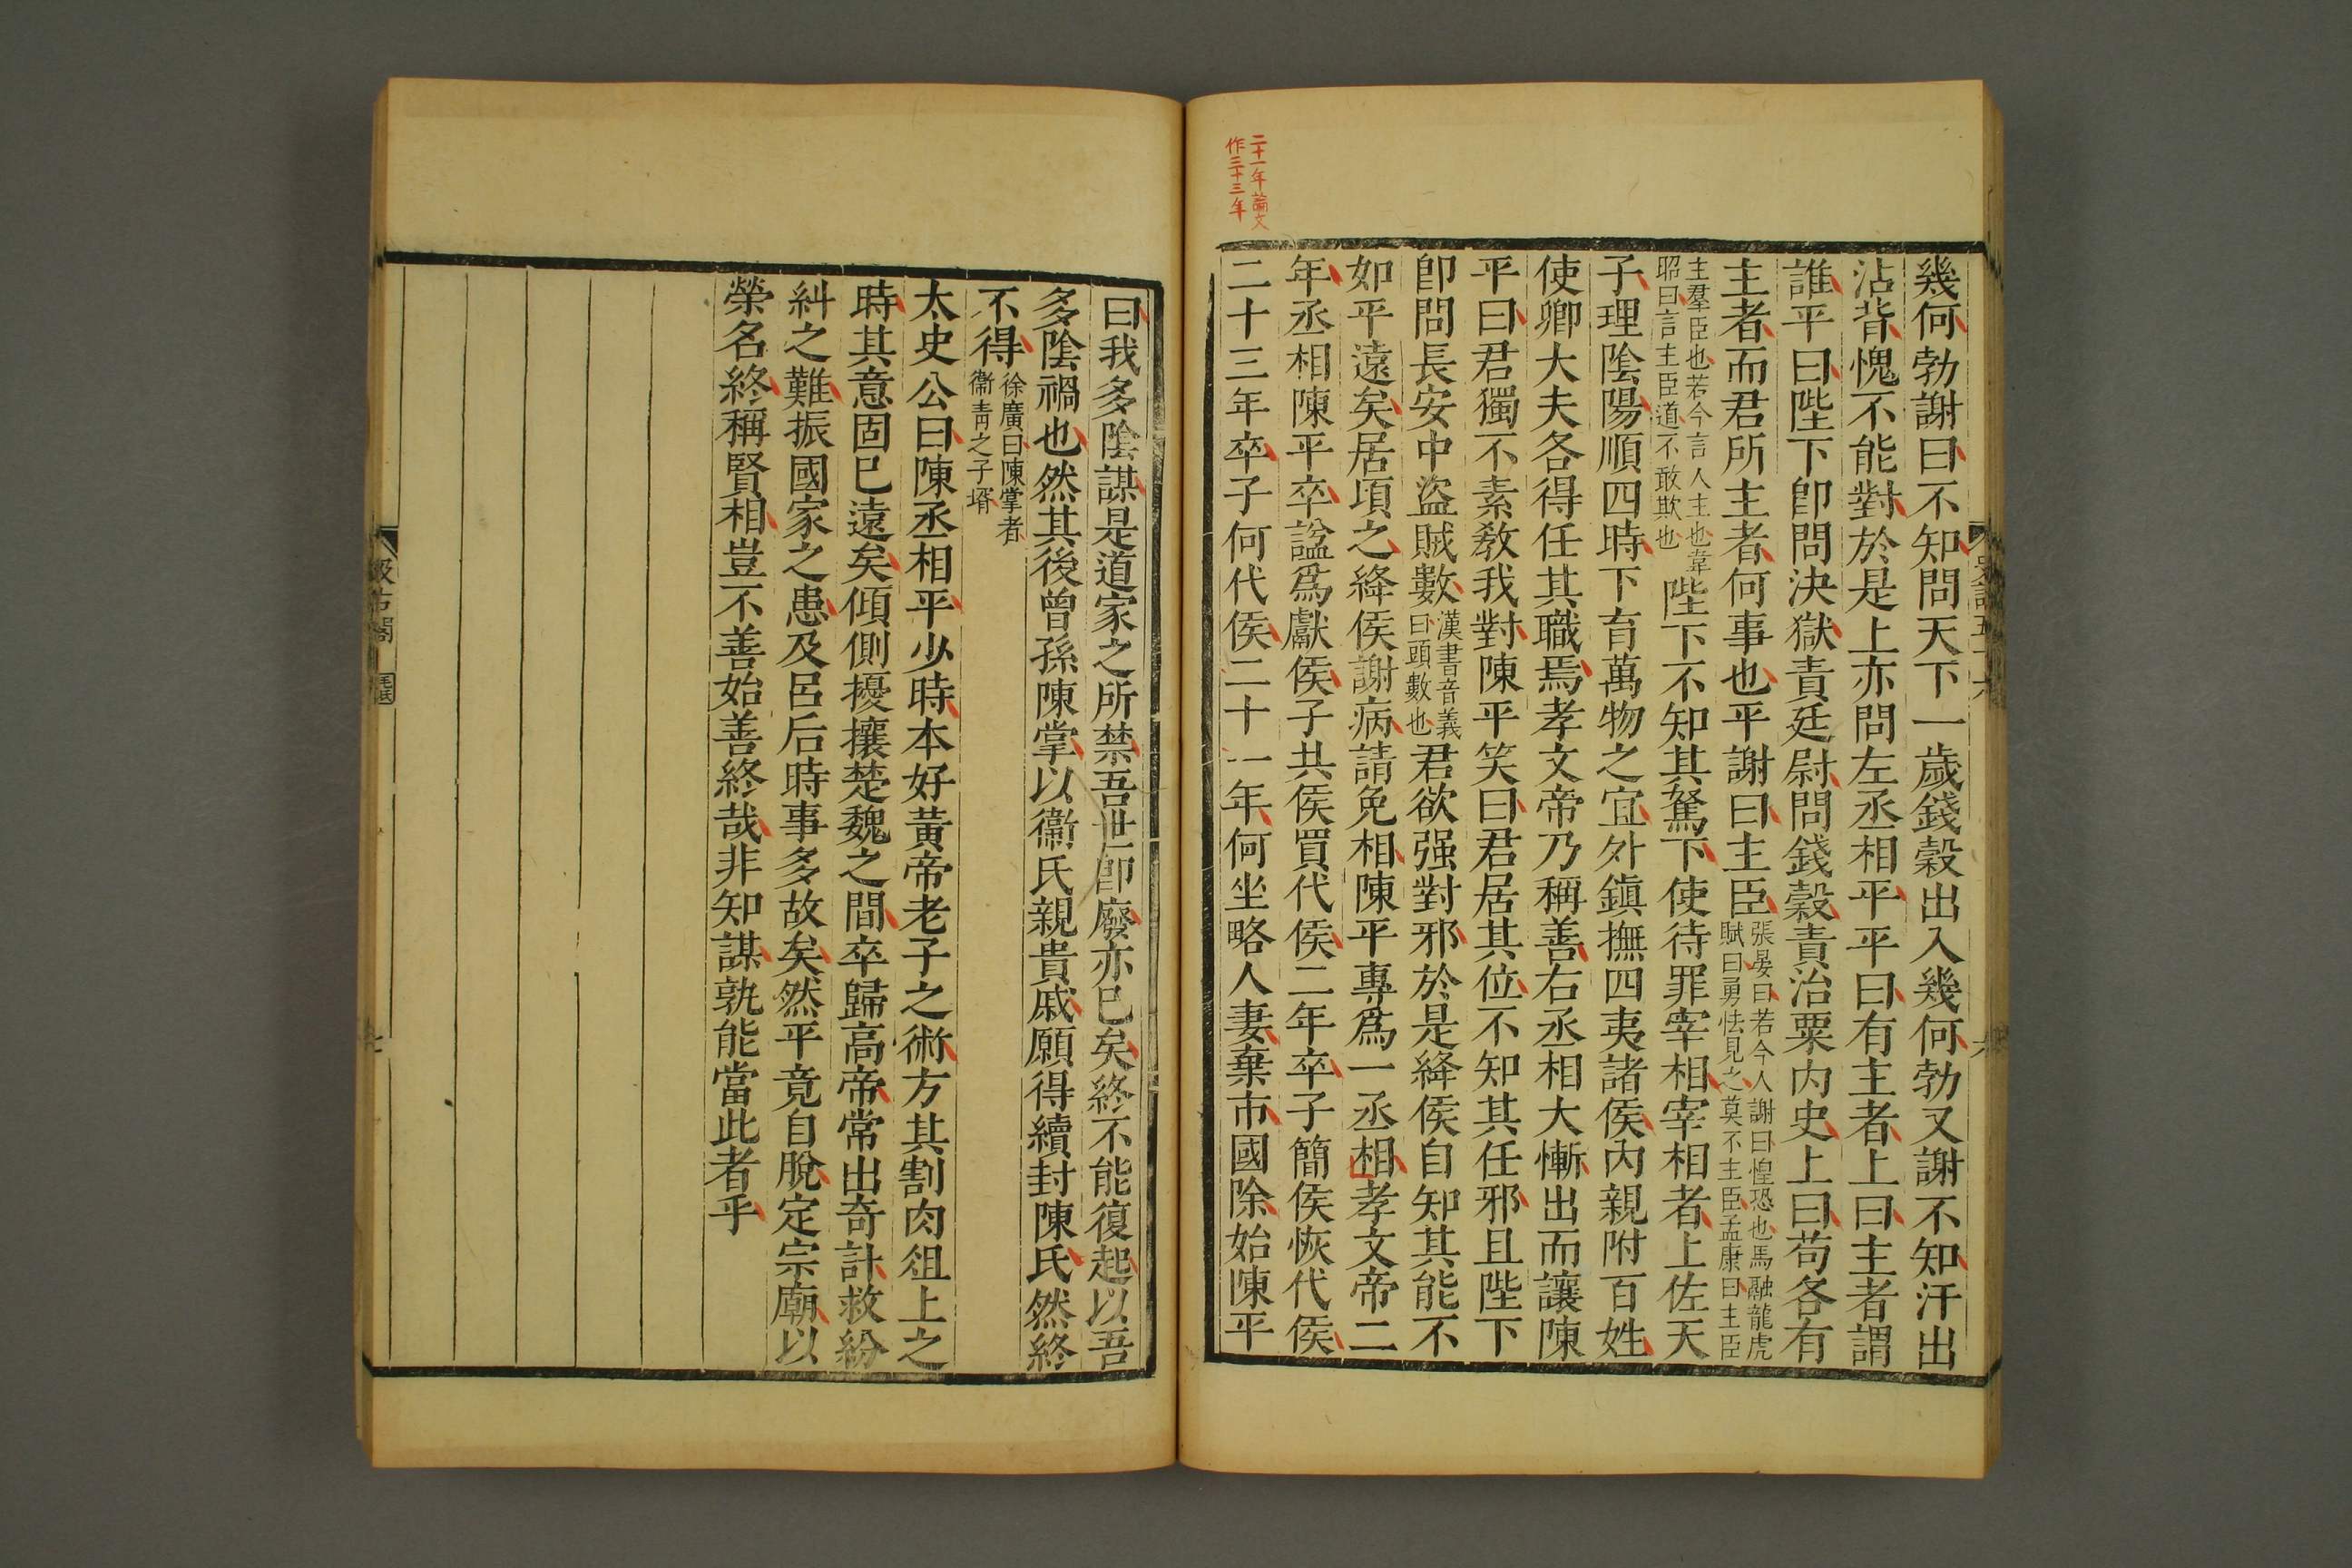 二十一年論文
作二十三年
幾何勃謝曰不知問天下一歲錢穀出入幾何勃又謝不知汗出
沾背愧不能對於是上亦問左丞相平平曰有主者上曰主者謂
誰平曰陛下卽問決獄責廷尉問錢穀責治粟內史上曰苟各有
主者而君所主者何事也平謝曰主臣張晏曰若今人謝曰惶恐也馬融龍虎
賦曰勇怯見之莫不主臣孟康曰主臣
主羣臣也若今言人主也韋
昭曰言主臣道不敢欺也陛下不知其駑下使待罪宰相宰相者上佐天
子理陰陽順四時下育萬物之宜外鎮撫四夷諸侯內親附百姓
使卿大夫各得任其職焉孝文帝乃稱善右丞相大慚出而讓陳
平曰君獨不素敎我對陳平笑曰君居其位不知其任邪且陛下
卽問長安中盜賊數漢書音義
曰頭數也君欲强對邪於是絳侯自知其能不
如平遠矣居頃之絳侯謝病請免相陳平專爲一丞相孝文帝二
年丞相陳平卒諡爲獻侯子共侯買代侯二年卒子簡侯恢代侯
二十三年卒子何代侯二十一年何坐略人妻棄市國除始陳平
曰我多陰謀是道家之所禁吾世卽廢亦已矣終不能復起以吾
多陰禍也然其後曾孫陳掌以衞氏親貴戚願得續封陳氏然終
不得徐廣曰陳掌者
衞靑之子壻
太史公曰陳丞相平少時本好黃帝老子之術方其割肉俎上之
時其意固已遠矣傾側擾攘楚魏之閒卒歸高帝常出奇計救紛
糾之難振國家之患及呂后時事多故矣然平竟自脫定宗廟以
榮名終稱賢相豈不善始善終哉非知謀孰能當此者乎
汲古閣